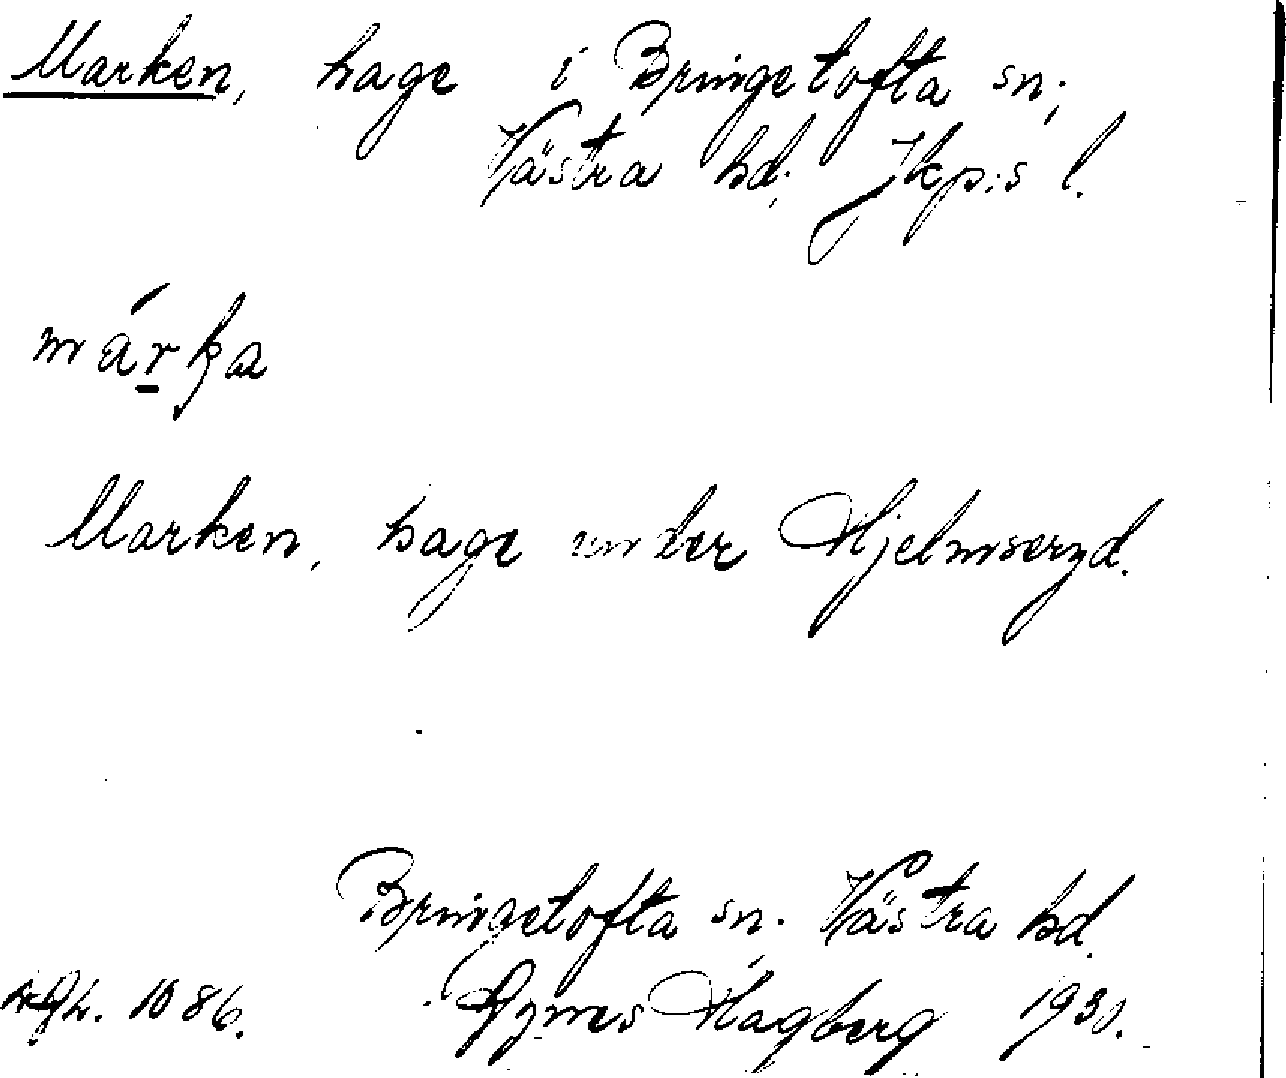 Marken, hage i Bringetofta sn;
Västra hd; Jkp:s l.
márka
Marken, hage under Hjelmseryd.
Bringetofta sn. Västra hd.
Agnes Hagberg 1930.
1086.